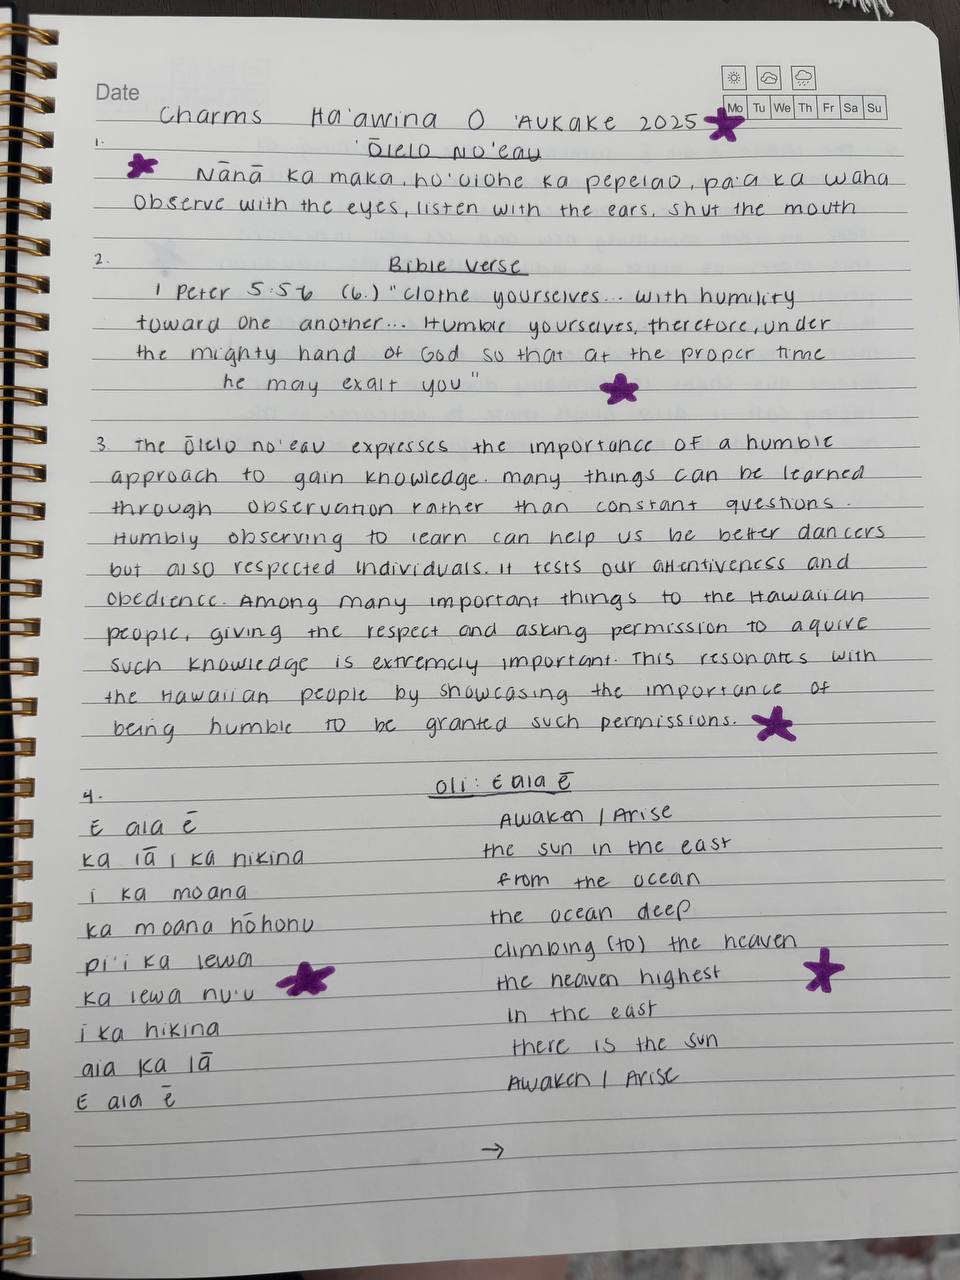 Date
Mo Tu We Th Fr Sa Su
Charms Ha'awina O 'Aukake 2025
1.
'Ōlelo No'eau
Nānā ka maka, ho'olohe ka pepeiao, pa'a ka waha
Observe with the eyes, listen with the ears, shut the mouth
2.
Bible verse
1 Peter 5:5-6 (6.) "Clothe yourselves... with humility
toward one another... Humble yourselves, therefore, under
the mighty hand of God so that at the proper time
he may exalt you"
3. The Ōlelo no'eau expresses the importance of a humble
approach to gain knowledge. many things can be learned
through observation rather than constant questions.
Humbly observing to learn can help us be better dancers
but also respected individuals. It tests our attentiveness and
obedience. Among many important things to the Hawaiian
people, giving the respect and asking permission to aquire
such knowledge is extremely important. This resonates with
the Hawaiian people by showcasing the importance of
being humble to be granted such permissions.
4.
Oli: E ala ē
E ala ē Awaken / Arise
ka lā i ka hikina the sun in the east
i ka moana from the ocean
ka moana hōhonu the ocean deep
pi'i ka lewa climbing (to) the heaven
ka lewa nu'u the heaven highest
i ka hikina in the east
aia ka lā there is the sun
E ala ē Awaken / Arise
→